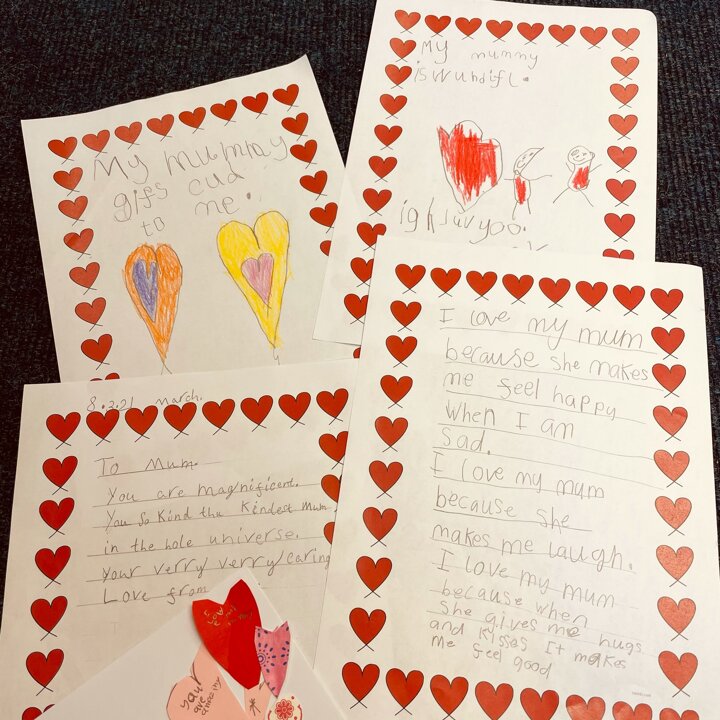 My mummy
gifs cud
to me.
My mummy
is wuhdifl.
igh luv yoo.
8.3.21 March.
To Mum.
You are magnificent.
You so kind the kindest mum
in the hole universe.
your verry verry caring
Love from
I love my mum
because she makes
me feel happy
when I am
sad.
I love my mum
because she
makes me laugh.
I love my mum
because when
she gives me hugs
and kisses It makes
me feel good
your
are
amazing